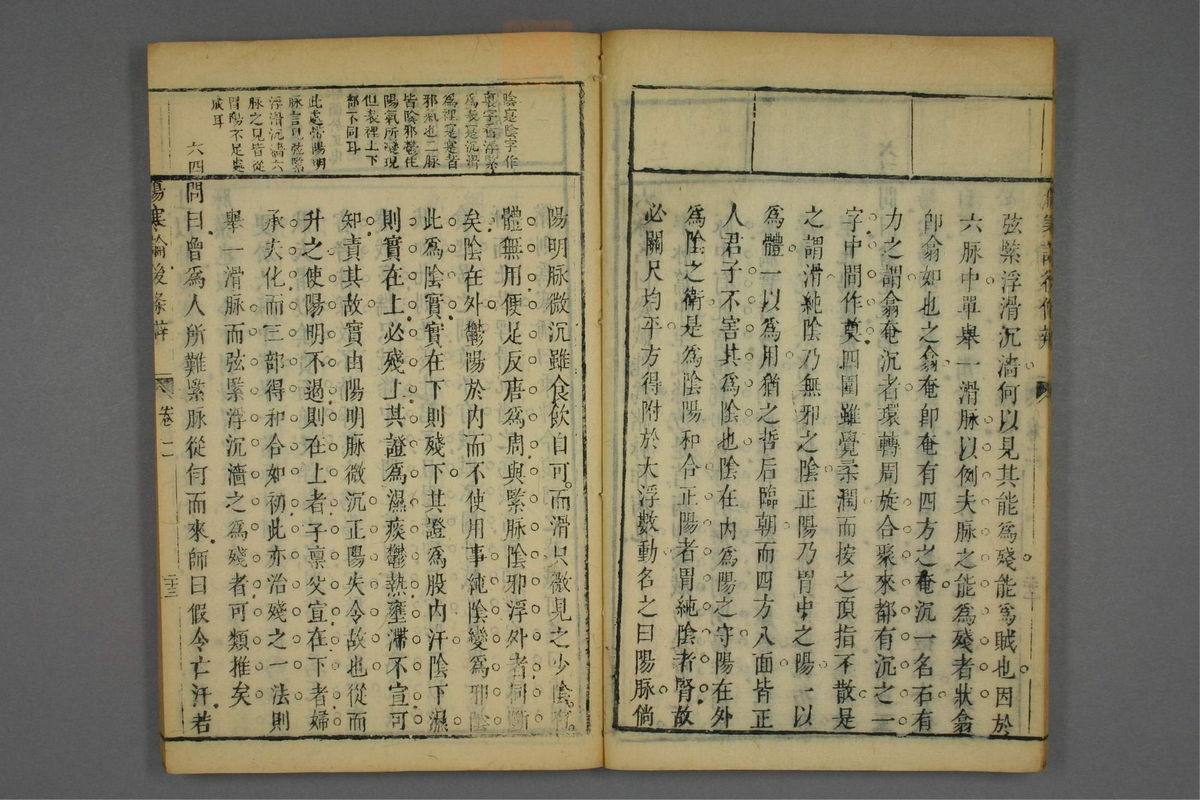 弦緊浮滑沉濇何以見其能爲殘能爲賊也因於
六脉中單舉一滑脉以例夫脉之能爲殘者狀翕
卽翕如也之翕奄卽奄有四方之奄沉一名石有
力之謂翕奄沉者環轉周旋合聚來都有沉之一
字中間作奠四圍雖覺柔潤而按之頂指不散是
之謂滑純陰乃無邪之陰正陽乃胃中之陽一以
爲體一以爲用猶之哲后臨朝而四方八面皆正
人君子不害其爲陰也陰在內爲陽之守陽在外
爲陰之衛是爲陰陽和合正陽者胃純陰者腎故
必關尺均平方得附於大浮數動名之曰陽脉倘
陰寔陰字作
裏字看浮緊
爲表寔沉滑
爲裡寔寔者
邪氣也二脉
皆陰邪鬱住
陽氣所變現
但表裡上下
部下同耳
此處帶陽明
脉言見弦緊
浮滑沉濇六
脉之見皆從
胃陽不足處
成耳
陽明脉微沉雖食飲自可而滑只微見之少陰
體無用便足反唐爲周與緊脉陰邪浮外者同斷
矣陰在外鬱陽於內而不使用事純陰變爲邪陰
此爲陰實實在下則殘下其證爲股內汗陰下濕
則實在上必殘上其證爲濕痰鬱熱壅滯不宣可
知責其故實由陽明脉微沉正陽失令故也從而
升之使陽明不遏則在上者子禀父宜在下者婦
承夫化而三部得和合如初此亦治殘之一法則
舉一滑脉而弦緊浮沉濇之爲殘者可類推矣
六四
問曰曾爲人所難緊脉從何而來師曰假令亡汗若
傷寒論後條辨
卷二
二十三